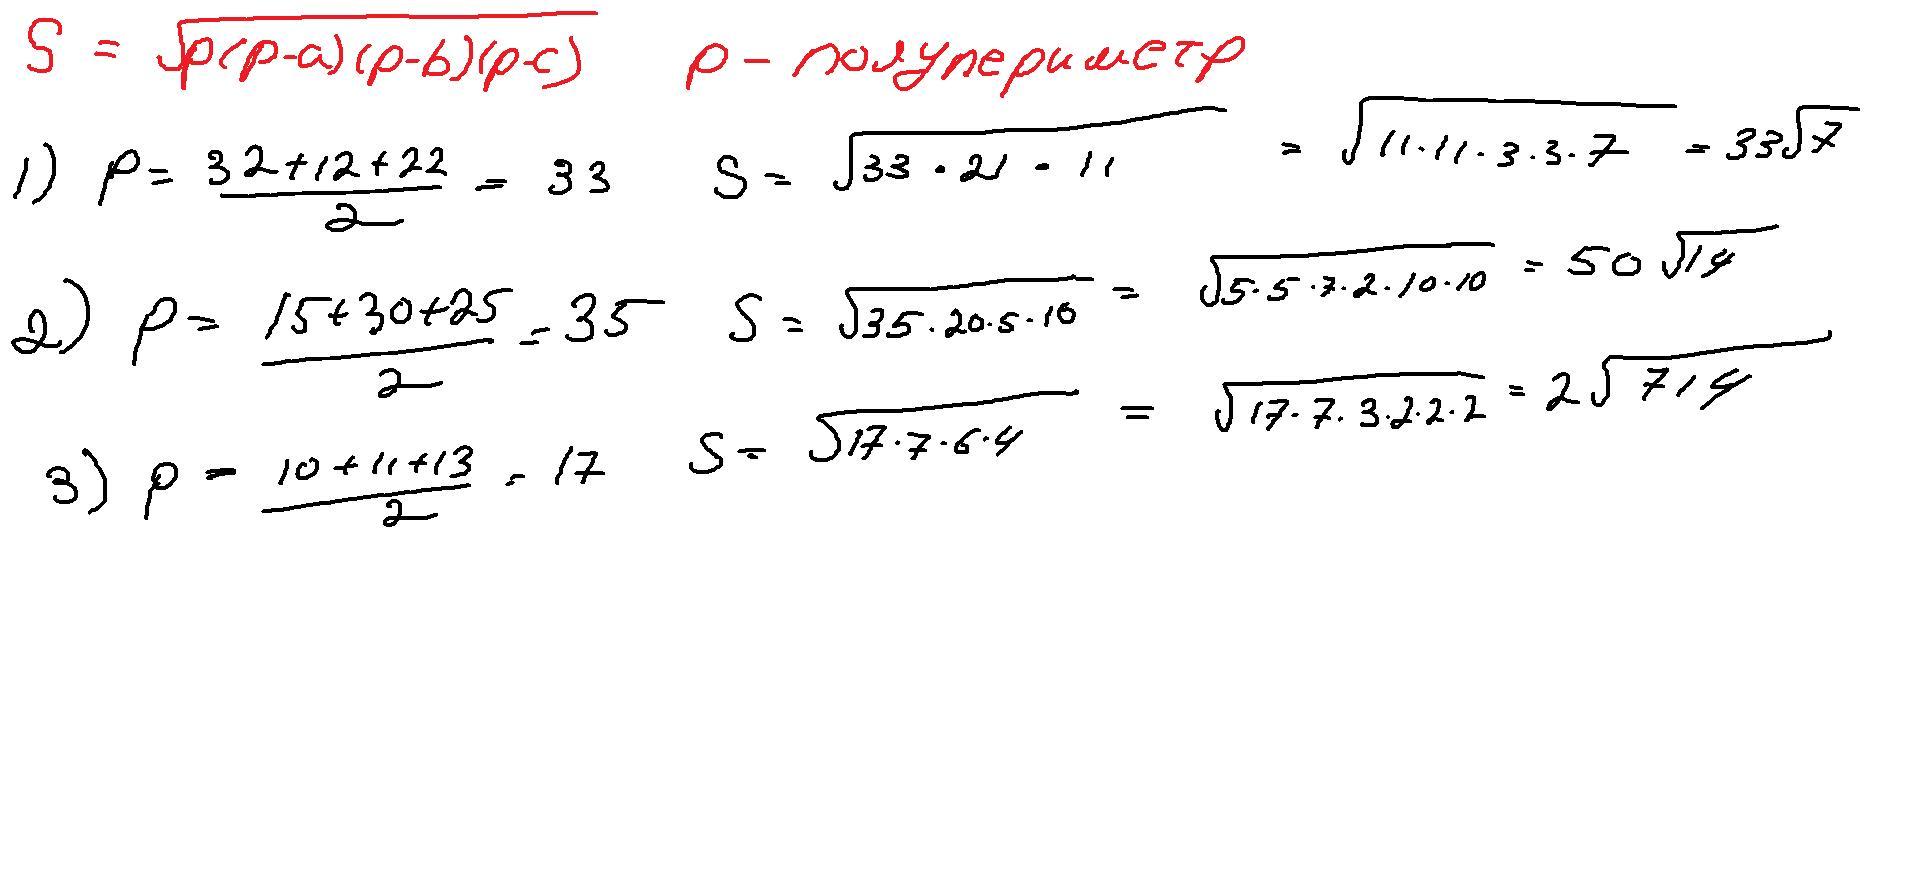 S = √p(p-a)(p-b)(p-c) p - полупериметр
1) p = 32+12+22/2 = 33 S = √33 · 21 · 11 = √11·11·3·3·7 = 33√7
2) p = 15+30+25/2 = 35 S = √35·20·5·10 = √5·5·7·2·10·10 = 50√14
3) p = 10+11+13/2 = 17 S = √17·7·6·4 = √17·7·3·2·2·2 = 2√714